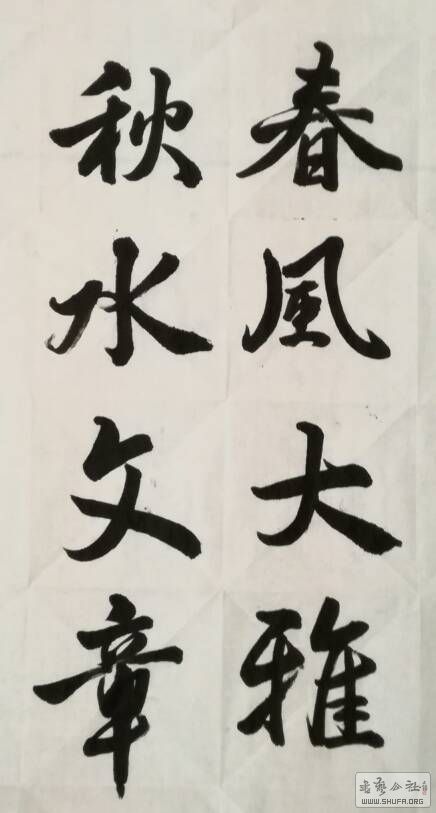 春風大雅
秋水文章
書藝公社
WWW.SHUFA.ORG